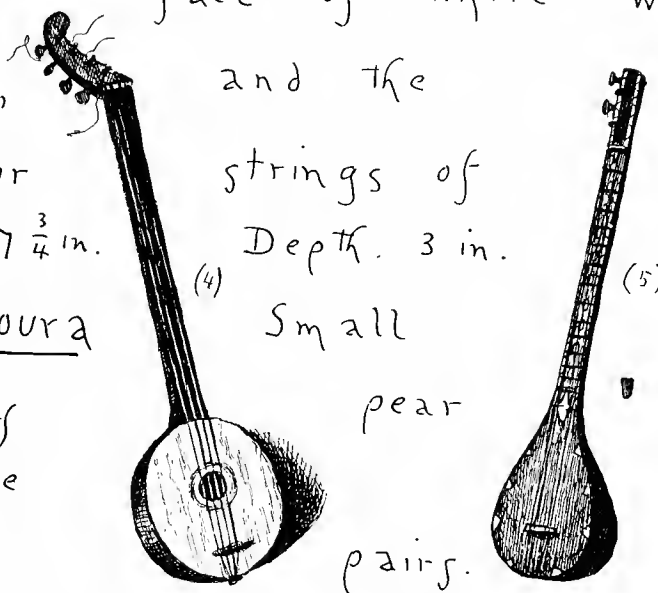 and the
strings of
7 3/4 in. Depth. 3 in.
(4) (5)
oura Small
pear
pairs.